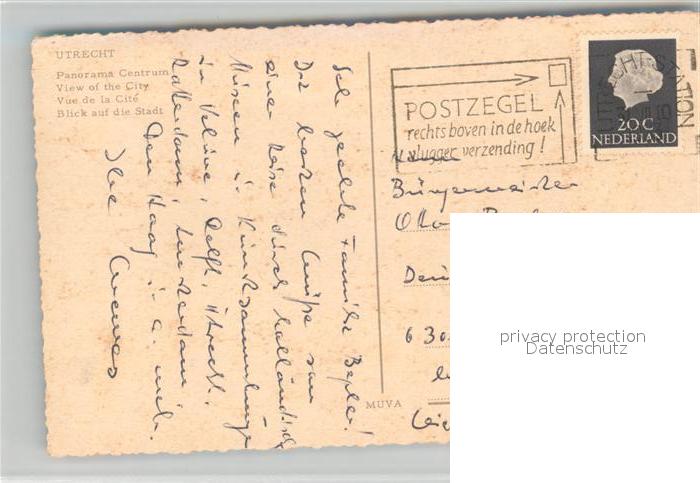 UTRECHT
Panorama Centrum
View of the City
Vue de la Cité
Blick auf die Stadt
Sehr geehrte Familie Bepler!
Die besten Grüße von
einer Reise durch holländische
Museen u. Kunstsammlungen
in Delft, Utrecht,
Rotterdam, Amsterdam,
Den Haag u. a. mehr.
Ihr
MUVA
POSTZEGEL
rechts boven in de hoek
vlugger verzending!
UTRECHT-STATION
20 C
NEDERLAND
Bürgermeister
Otto
630
privacy protection
Datenschutz